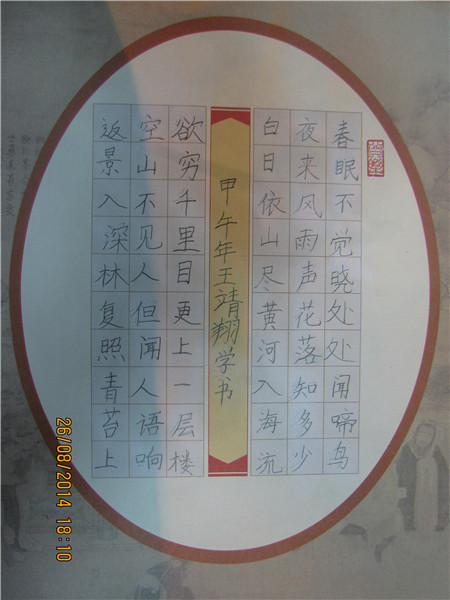 春眠不觉晓处处闻啼鸟
夜来风雨声花落知多少
白日依山尽黄河入海流
甲午年王靖翔学书
欲穷千里目更上一层楼
空山不见人但闻人语响
返景入深林复照青苔上
26/08/2014 18:10